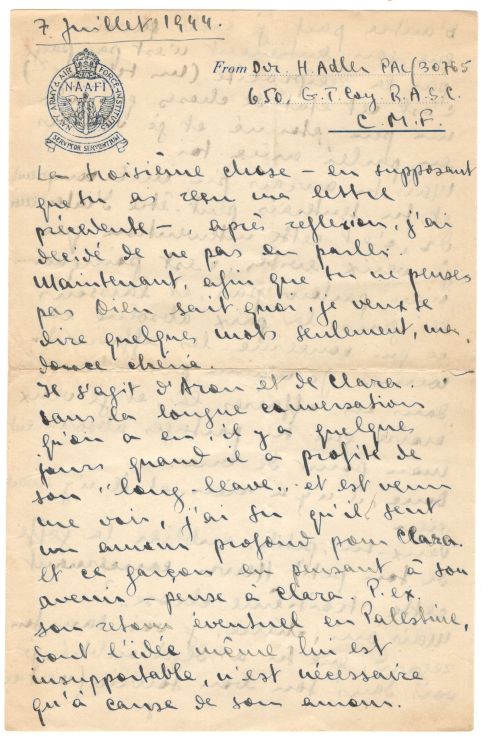 7 Juillet 1944.
NAVY, ARMY & AIR FORCE INSTITUTES
NAAFI
SERVITOR SERVIENTIUM
From Dvr. H. Adler PAL/30765
650, G.T. Coy R.A.S.C.
C.M.F.
La troisième chose – en supposant
que tu as reçu ma lettre
précédente – après reflexion, j'ai
décidé de ne pas en parler.
Maintenant, afin que tu ne penses
pas Dieu sait quoi, je veux te
dire quelques mots seulement, ma
douce chérie.
Il s'agit d'Aron et de Clara.
Dans la longue conversation
qu'on a eu, il y a quelques
jours quand il a profité de
son "long-leave" et est venu
me voir, j'ai su qu'il sent
un amour profond pour Clara.
et ce garçon en pensant à son
avenir – pense à Clara. P. ex.
son retour éventuel en Palestine,
dont l'idée même lui est
insupportable, n'est nécessaire
qu'à cause de son amour.